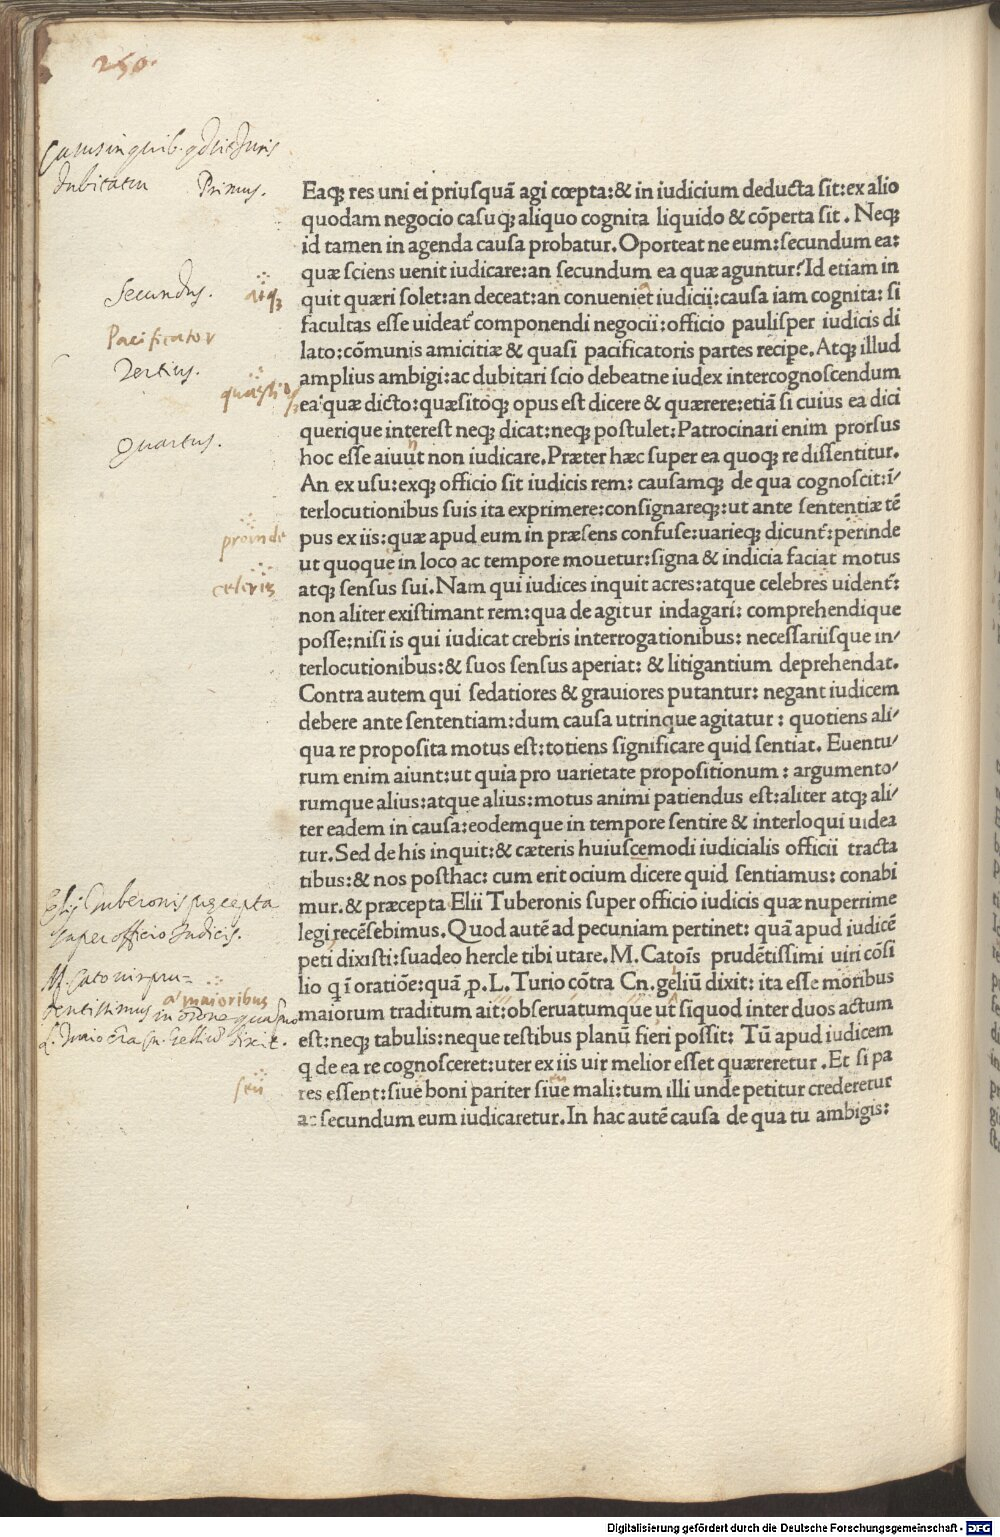 250.
Casus in quib. q̃ dicit Iuris
dubitatu Primus.
Secundus.
atq;
Pacificator
Tertius.
quæstio
Quartus.
proinde
celeris
Elij Tuberonis præcepta
super officio Iudicis.
M. Catonis pru-
dentissimus
a' maioribus
in orõne qua pro
seu
Eaq; res uni ei priusquā agi cœpta:& in iudicium deducta sit:ex alio
quodam negocio casuq; aliquo cognita liquido & cōperta sit . Neq;
id tamen in agenda causa probatur. Oporteat ne eum:secundum ea:
quæ sciens uenit iudicare:an secundum ea quæ aguntur? Id etiam in
quit quæri solet:an deceat:an conueniet iudicii:causa iam cognita: si
facultas esse uideat᷒ componendi negocii:officio paulisper iudicis di
lato:cōmunis amicitiæ & quasi pacificatoris partes recipe. Atq; illud
amplius ambigi:ac dubitari scio debeatne iudex intercognoscendum
ea quæ dicto:quæsitoq; opus est dicere & quærere:etiā si cuius ea dici
querique interest neq; dicat:neq; postulet:Patrocinari enim prorsus
hoc esse aiuut non iudicare. Præter hæc super ea quoq; re dissentitur.
An ex usu:exq; officio sit iudicis rem: causamq; de qua cognoscit:ī/
terlocutionibus suis ita exprimere:consignareq;:ut ante sententiæ tē
pus ex iis:quæ apud eum in præsens confuse:uarieq; dicunt᷒:perinde
ut quoque in loco ac tempore mouetur:signa & indicia faciat motus
atq; sensus sui. Nam qui iudices inquit acres:atque celebres uident᷒:
non aliter existimant rem:qua de agitur indagari: comprehendique
posse:nisi is qui iudicat crebris interrogationibus: necessariisque in/
terlocutionibus:& suos sensus aperiat: & litigantium deprehendat.
Contra autem qui sedatiores & grauiores putantur: negant iudicem
debere ante sententiam:dum causa utrinque agitatur : quotiens ali/
qua re proposita motus est:totiens significare quid sentiat. Euentu/
rum enim aiunt:ut quia pro uarietate propositionum : argumento/
rumque alius:atque alius:motus animi patiendus est:aliter atq; ali/
ter eadem in causa:eodemque in tempore sentire & interloqui uidea
tur. Sed de his inquit:& cæteris huiuscemodi iudicialis officii tracta
tibus:& nos posthac: cum erit ocium dicere quid sentiamus: conabi
mur. & præcepta Elii Tuberonis super officio iudicis quæ nuperrime
legi recēsebimus. Quod autē ad pecuniam pertinet: quā apud iudicē
peti dixisti:suadeo hercle tibi utare. M. Catoīs prudētissimi uiri cōsi
lio q ī oratiōe:quā ꝓ. L. Turio cōtra Cn. geliū dixit: ita esse moribus
maiorum traditum ait:obseruatumque ut siquod inter duos actum
est:neq; tabulis:neque testibus planū fieri possit: Tū apud iudicem
q de ea re cognosceret:uter ex iis uir melior esset quæreretur . Et si pa
res essent:siue boni pariter siue mali:tum illi unde petitur crederetur
ac secundum eum iudicaretur. In hac autē causa de qua tu ambigis:
Digitalisierung gefördert durch die Deutsche Forschungsgemeinschaft - DFG